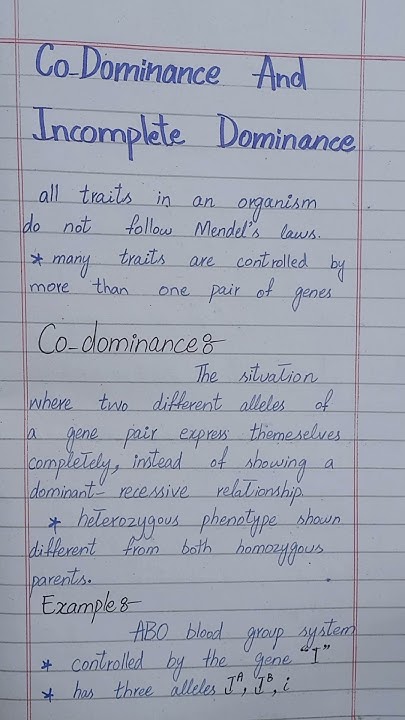 Co-Dominance And
Incomplete Dominance
all traits in an organism
do not follow Mendel's laws.
* many traits are controlled by
more than one pair of genes
Co-dominance:-
The situation
where two different alleles of
a gene pair express themeselves
completely, instead of showing a
dominant- recessive relationship.
* heterozygous phenotype shown
different from both homozygous
parents.
Example:-
ABO blood group system
* controlled by the gene "I"
* has three alleles Iᴬ, Iᴮ, i